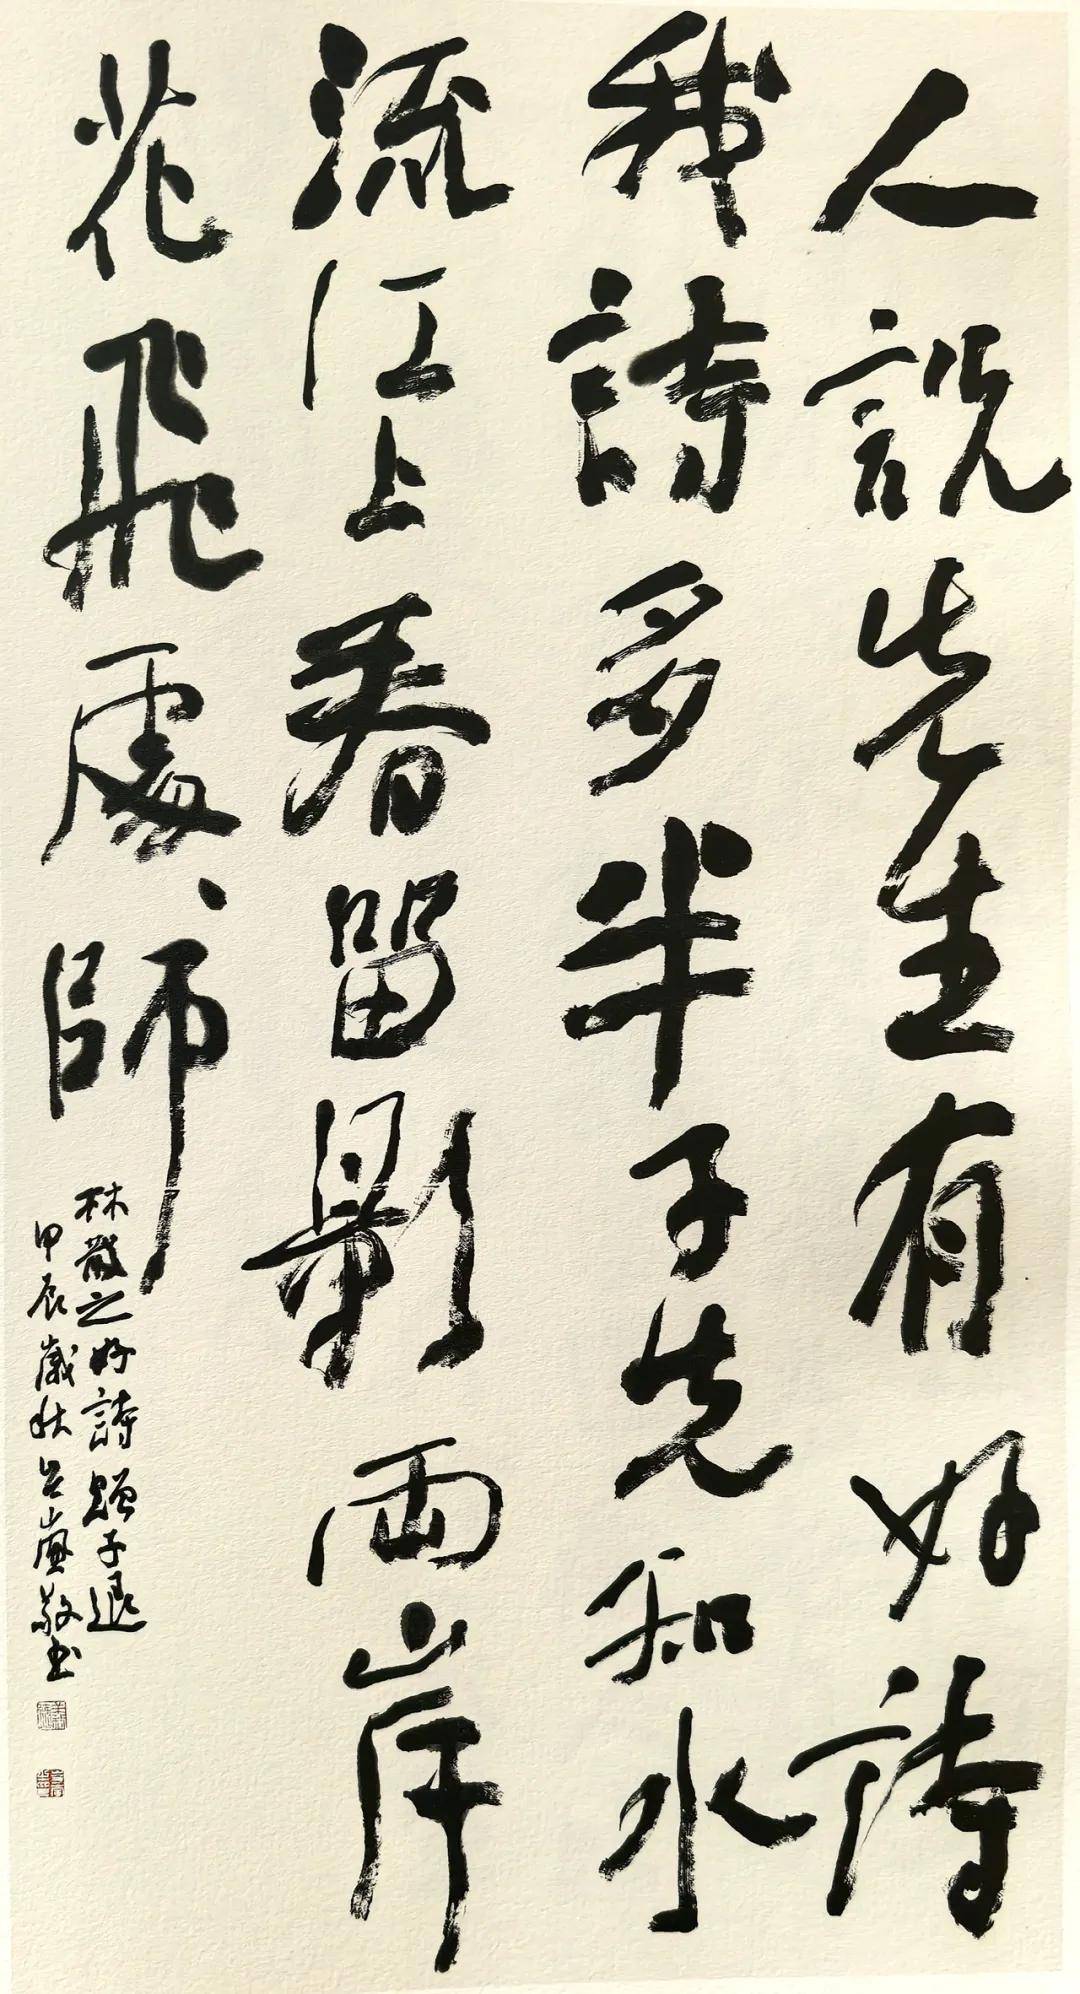 人說先生有好詩
我詩多半子先知水
流江上春留影兩岸
花飛處處師
林散之好詩贈子退
甲辰歲秋吳嵐敬书